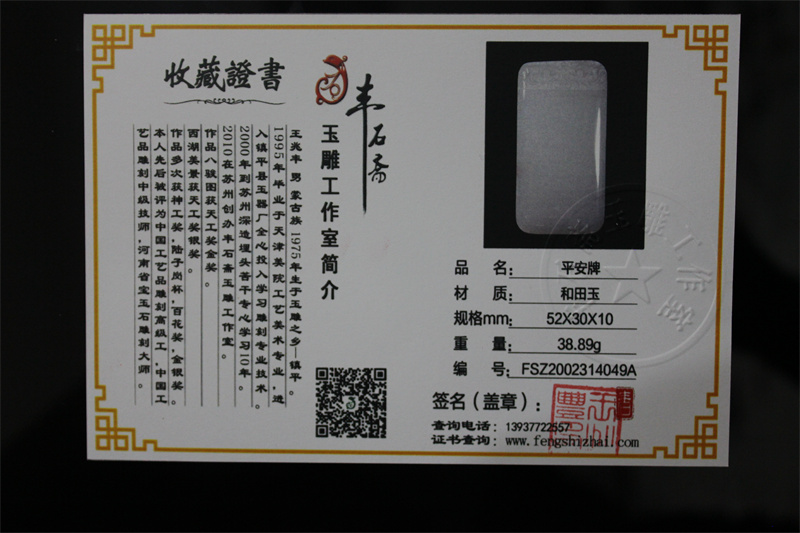 收藏證書
丰石斋
玉雕工作室简介
王兆丰 男 蒙古族 1975年生于玉雕之乡—镇平。
1995年毕业于天津美院工艺美术专业,进
入镇平县玉器厂全心投入学习雕刻专业技术。
2000年到苏州深造埋头苦干专心学习10年。
2010在苏州创办丰石斋玉雕工作室。
作品八骏图获天工奖金奖。
西湖美景获天工奖银奖。
作品多次获神工奖,陆子岗杯,百花奖,金银奖。
本人先后被评为中国工艺品雕刻高级工,中国工
艺品雕刻中级技师,河南省宝玉石雕刻大师。
品 名: 平安牌
材 质: 和田玉
规格mm: 52X30X10
重 量: 38.89g
编 号: FSZ2002314049A
签名(盖章):
查询电话: 13937722557
证书查询: www.fengshizhai.com